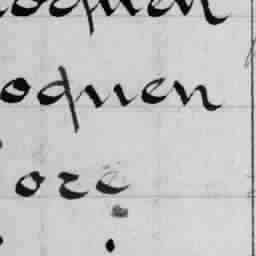 oquen
oquen
ore